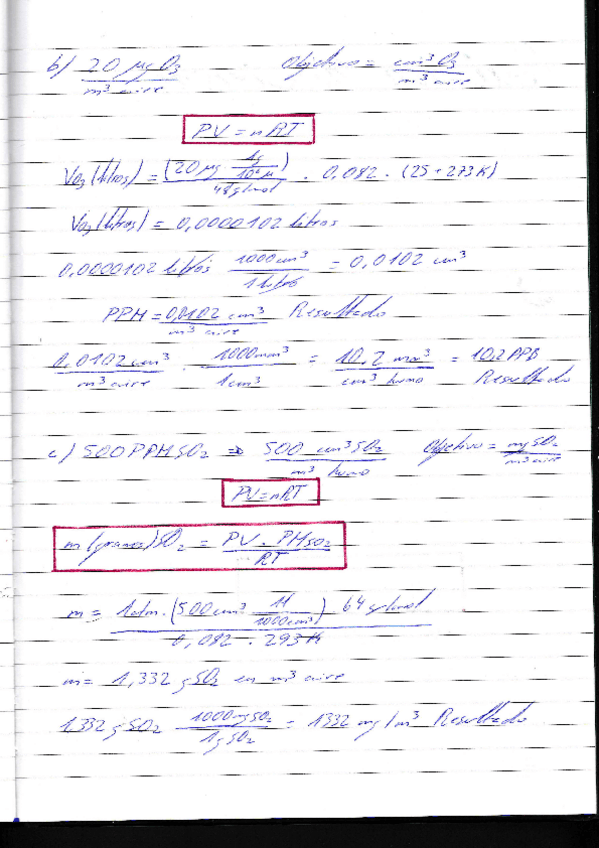 b) 20 µg O3 / m³ aire    Objetivo = cm³ O3 / m³ aire
PV = nRT
VO3 (litros) = (20 µg · 1g / 10⁶ µ) / 48 g/mol · 0,082 · (25 + 273 K)
VO3 (litros) = 0,0000102 litros
0,0000102 litros · 1000 cm³ / 1 litro = 0,0102 cm³
PPM = 0,0102 cm³ / m³ aire    Resultado
0,0102 cm³ / m³ aire · 1000 mm³ / 1 cm³ = 10,2 mm³ / cm³ humo = 10,2 PPB
Resultado
c) 500 PPM SO2 ⇒ 500 cm³ SO2 / m³ humo    Objetivo = mg SO2 / m³ aire
PV = nRT
m (gramos) SO2 = PV · PM SO2 / RT
m = 1 atm · (500 cm³ · 1l / 1000 cm³) 64 g/mol / 0,082 · 293 K
m = 1,332 g SO2 en m³ aire
1,332 g SO2 · 1000 mg SO2 / 1 g SO2 = 1332 mg/m³ Resultado